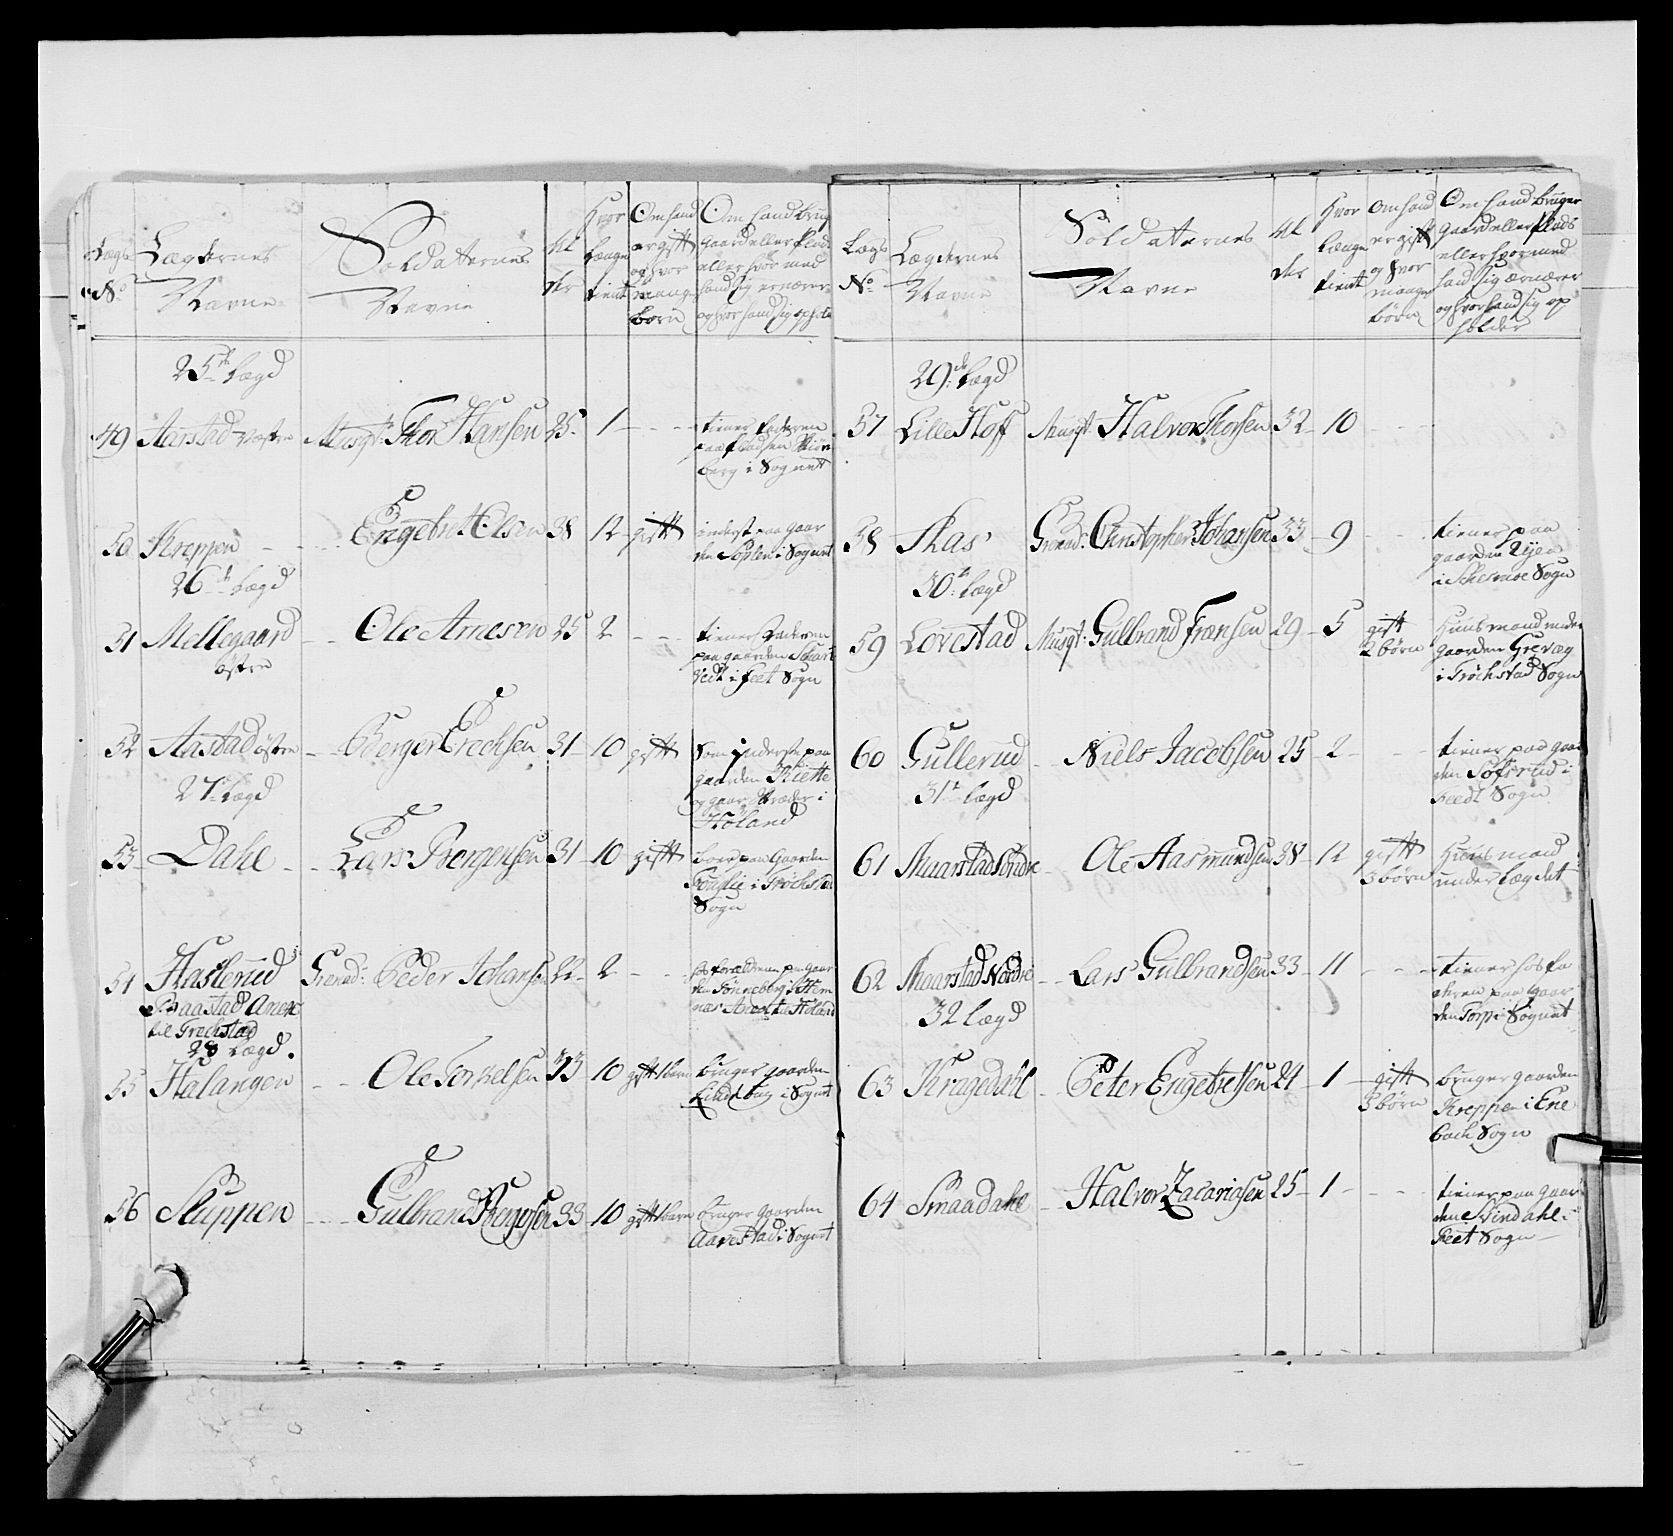 Lægs
No
Lægdernes
Navne
Soldaternes
Navne
Al
der
Hvor
længe
tient
Om hand
er gift
og hvor
mange
børn
Om hand brug
gaard eller Plads
eller hvor med
hand sig ernærer
og hvor hand sig opholde
25de Lægd
49 Aarstad Næstre Musqt: Thor Hansen 25 1
tiener
paa Pladsen
berg i Sognet
50 Kreppen Engebret Olsen 38 12 gift
inderst paa gaar
den i Sognet
26de Lægd
51 Mellegaard Ole Arnesen 25 2
østre
tiener Faderen
paa gaarden
i Feet Sogn
52 Aastad østre Børger Erechsen 31 10 gift
Som inderst paa
gaarden Kiette
og gaar i
Høland
27de Lægd
53 Dahl Lars Børgersen 31 10 gift
boer paa Gaarden
i Trøchstad
Sogn
54 Haslerud Grenad: Peder Johansen 22 2
hos forældrene paa gaar
den Tønneberg i Hem
næs Annex til Høland
Baastad Anex
til Trøchstad
28 Lægd.
55 Halangen Ole Torkelsen 33 10 gift 1 barn
bruger gaarden
i Sognet
56 Sluppen Gulbrand Børgesen 33 10 gift 1 barn
bruger gaarden
Aarestad i Sognet
Lægs
No
Lægdernes
Navne
Soldaternes
Navne
Al
der
Hvor
længe
tient
Om hand
er gift
og hvor
mange
børn
Om hand bruger
gaard eller Plads
eller hvormed
hand sig ærnærer
og hvor hand sig op
holder
29de Lægd
57 Lille Hoff Musqt Halvor Thorsen 32 10
58 Skas Grenad: Christopher Johansen 33 9
tiener paa
gaarden Ryen
i Schesmoe Sogn
30te Lægd
59 Lovestad Musqt: Gulbrand Fransen 29 5 gift
2 børn
Huusmand under
gaarden Grevæg
i Trøchstad Sogn
60 Gullerud Niels Jacobsen 25 2
tiener paa gaar
den Sofsrud i
Feedt Sogn
31te Lægd
61 Maarstad Søndre Ole Aasmundsen 38 12 gift
3 børn
Huusmand
under Lægdet
62 Maarstad Nordre Lars Gulbrandsen 33 11
tiener hos fa
deren paa gaar
den Torp i Sognet
32 Lægd
63 Kragedahl Peter Engebretsen 24 1 gift
3 børn
bruger gaarden
Kreppen i Ene
bach Sogn
64 Smaadahl Halvor Zacariasen 25 1
tiener paa gaar
den Nindahl i
Feet Sogn